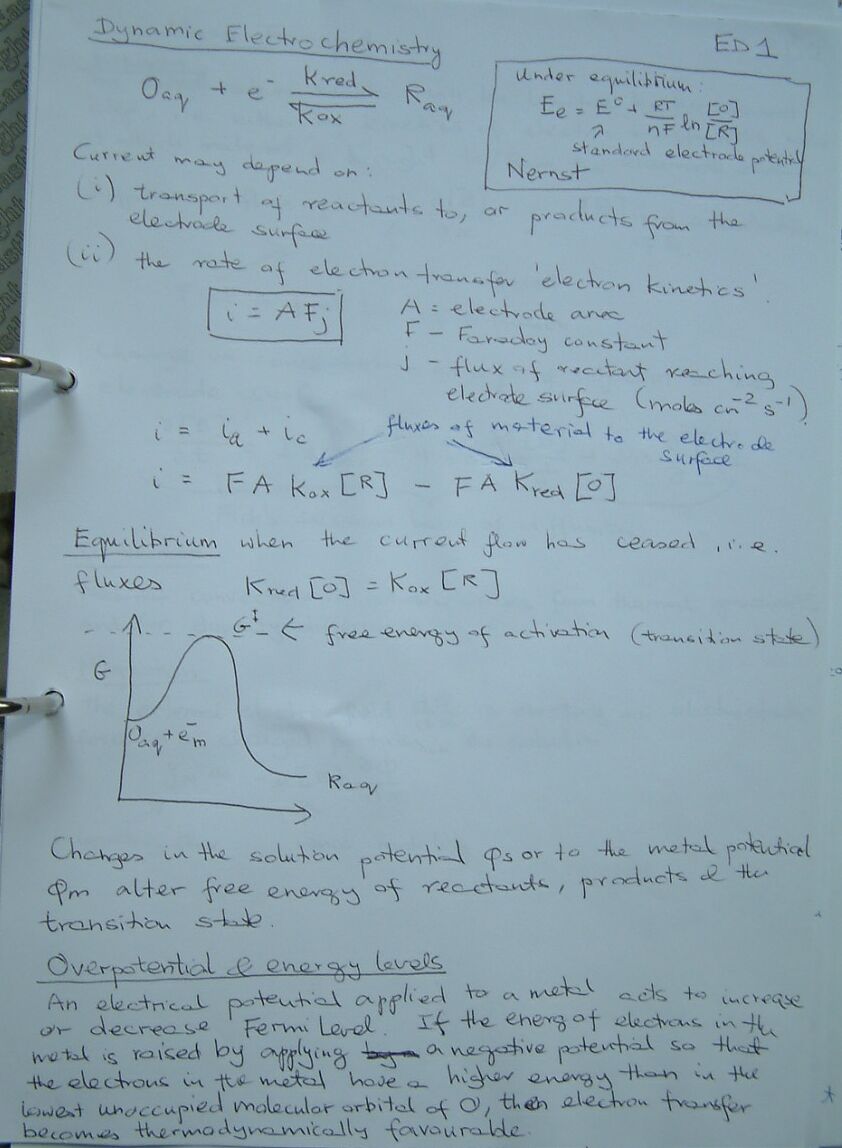 Dynamic Electrochemistry
ED1
Oaq + e⁻ Kred / Kox Raq
Under equilibrium:
Ee = E⁰ + RT/nF ln [O]/[R]
standard electrode potential
Nernst
Current may depend on:
(i) transport of reactants to, or products from the
electrode surface
(ii) the rate of electron transfer 'electron kinetics'.
i = AFj
A = electrode area
F - Faraday constant
j - flux of reactant reaching
electrode surface (moles cm⁻² s⁻¹)
i = ia + ic
fluxes of material to the electrode
surface
i = FA Kox [R] - FA Kred [O]
Equilibrium when the current flow has ceased, i.e.
fluxes Kred [O] = Kox [R]
G‡ ← free energy of activation (transition state)
G
Oaq + e⁻m
Raq
Changes in the solution potential φs or to the metal potential
φm alter free energy of reactants, products & the
transition state.
Overpotential & energy levels
An electrical potential applied to a metal acts to increase
or decrease Fermi Level. If the energy of electrons in the
metal is raised by applying a negative potential so that
the electrons in the metal have a higher energy than in the
lowest unoccupied molecular orbital of O, then electron transfer
becomes thermodynamically favourable.